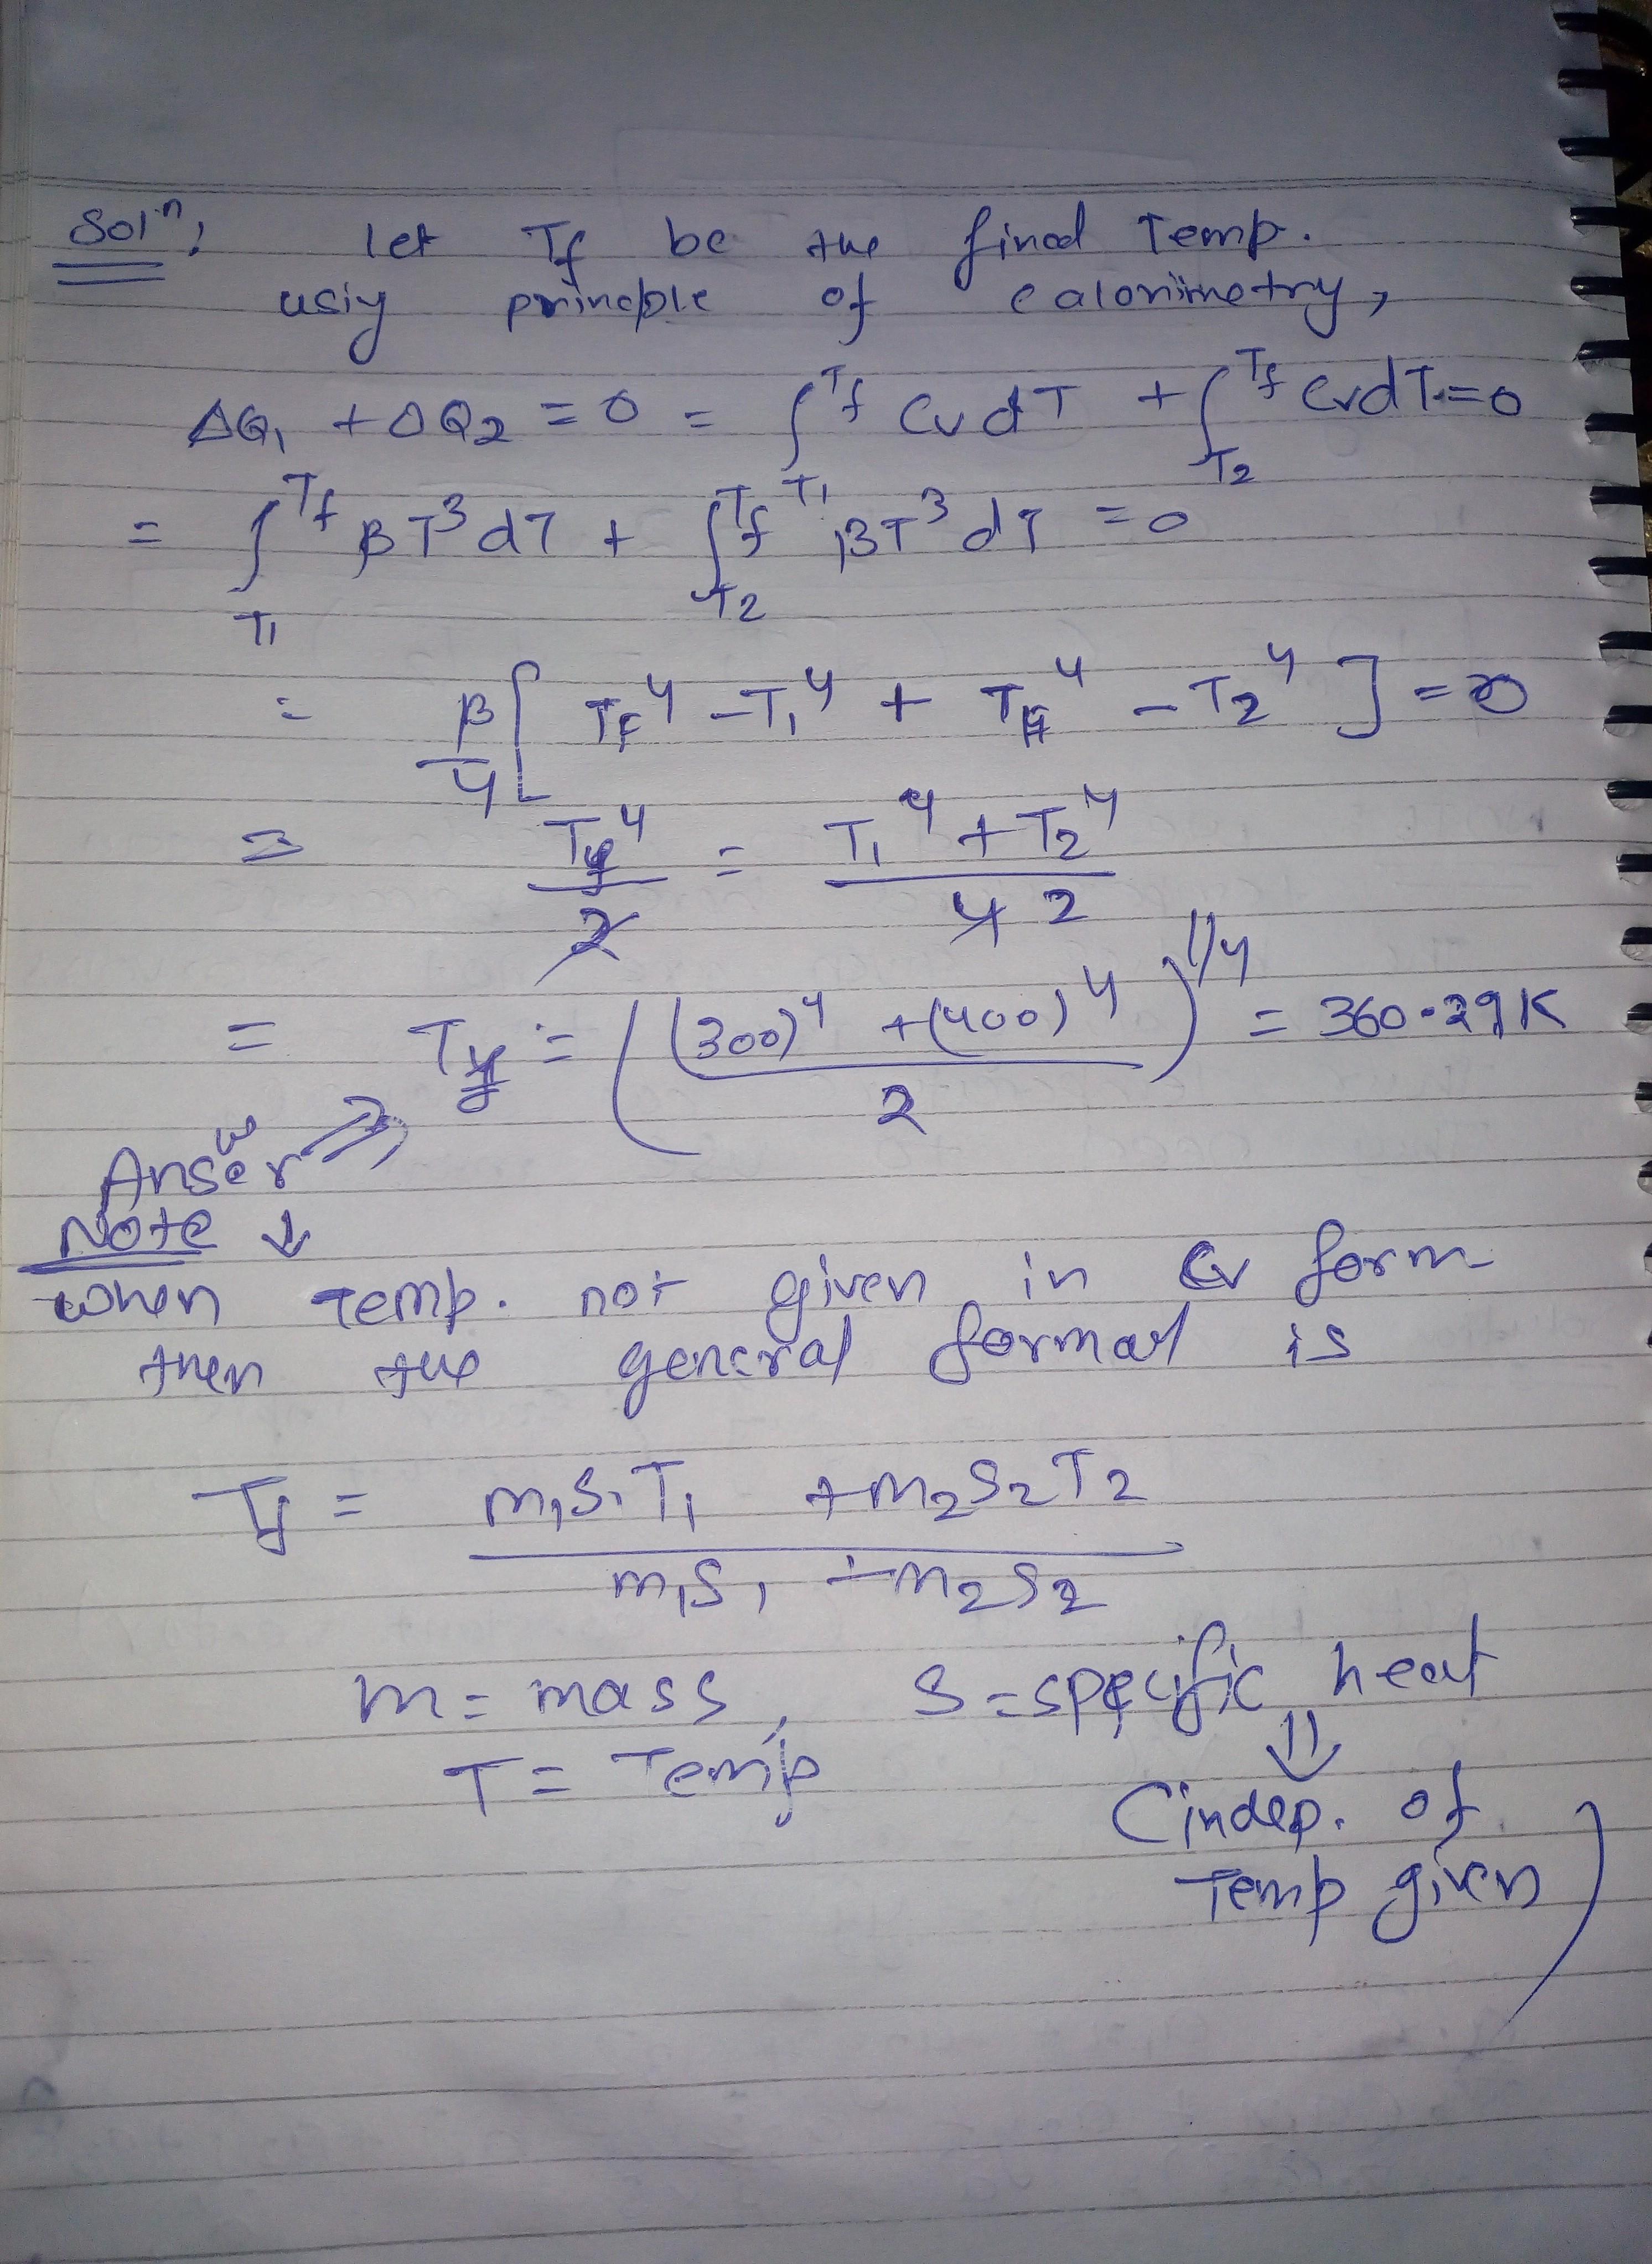 Solⁿ: let Tf be the final Temp.
usiy princple of calorimetry,
ΔQ₁ + ΔQ₂ = 0 = ∫_{T₁}^{Tf} Cv dT + ∫_{T₂}^{Tf} Cv dT = 0
= ∫_{T₁}^{Tf} βT³ dT + ∫_{T₂}^{Tf} βT³ dT = 0
= β/4 [ T_F⁴ - T₁⁴ + T_F⁴ - T₂⁴ ] = 0
⇒ Tf⁴/2 = T₁⁴ + T₂⁴ / 4 2
= Tf = ( (300)⁴ + (400)⁴ / 2 )^{1/4} = 360.29K
Answer ⇒
Note ↓
when Temp. not given in Cv form
then the general format is
Tf = m₁s₁T₁ + m₂s₂T₂ / m₁s₁ + m₂s₂
m = mass, s = specific heat
T = Temp ⇓
(indep. of
Temp given)